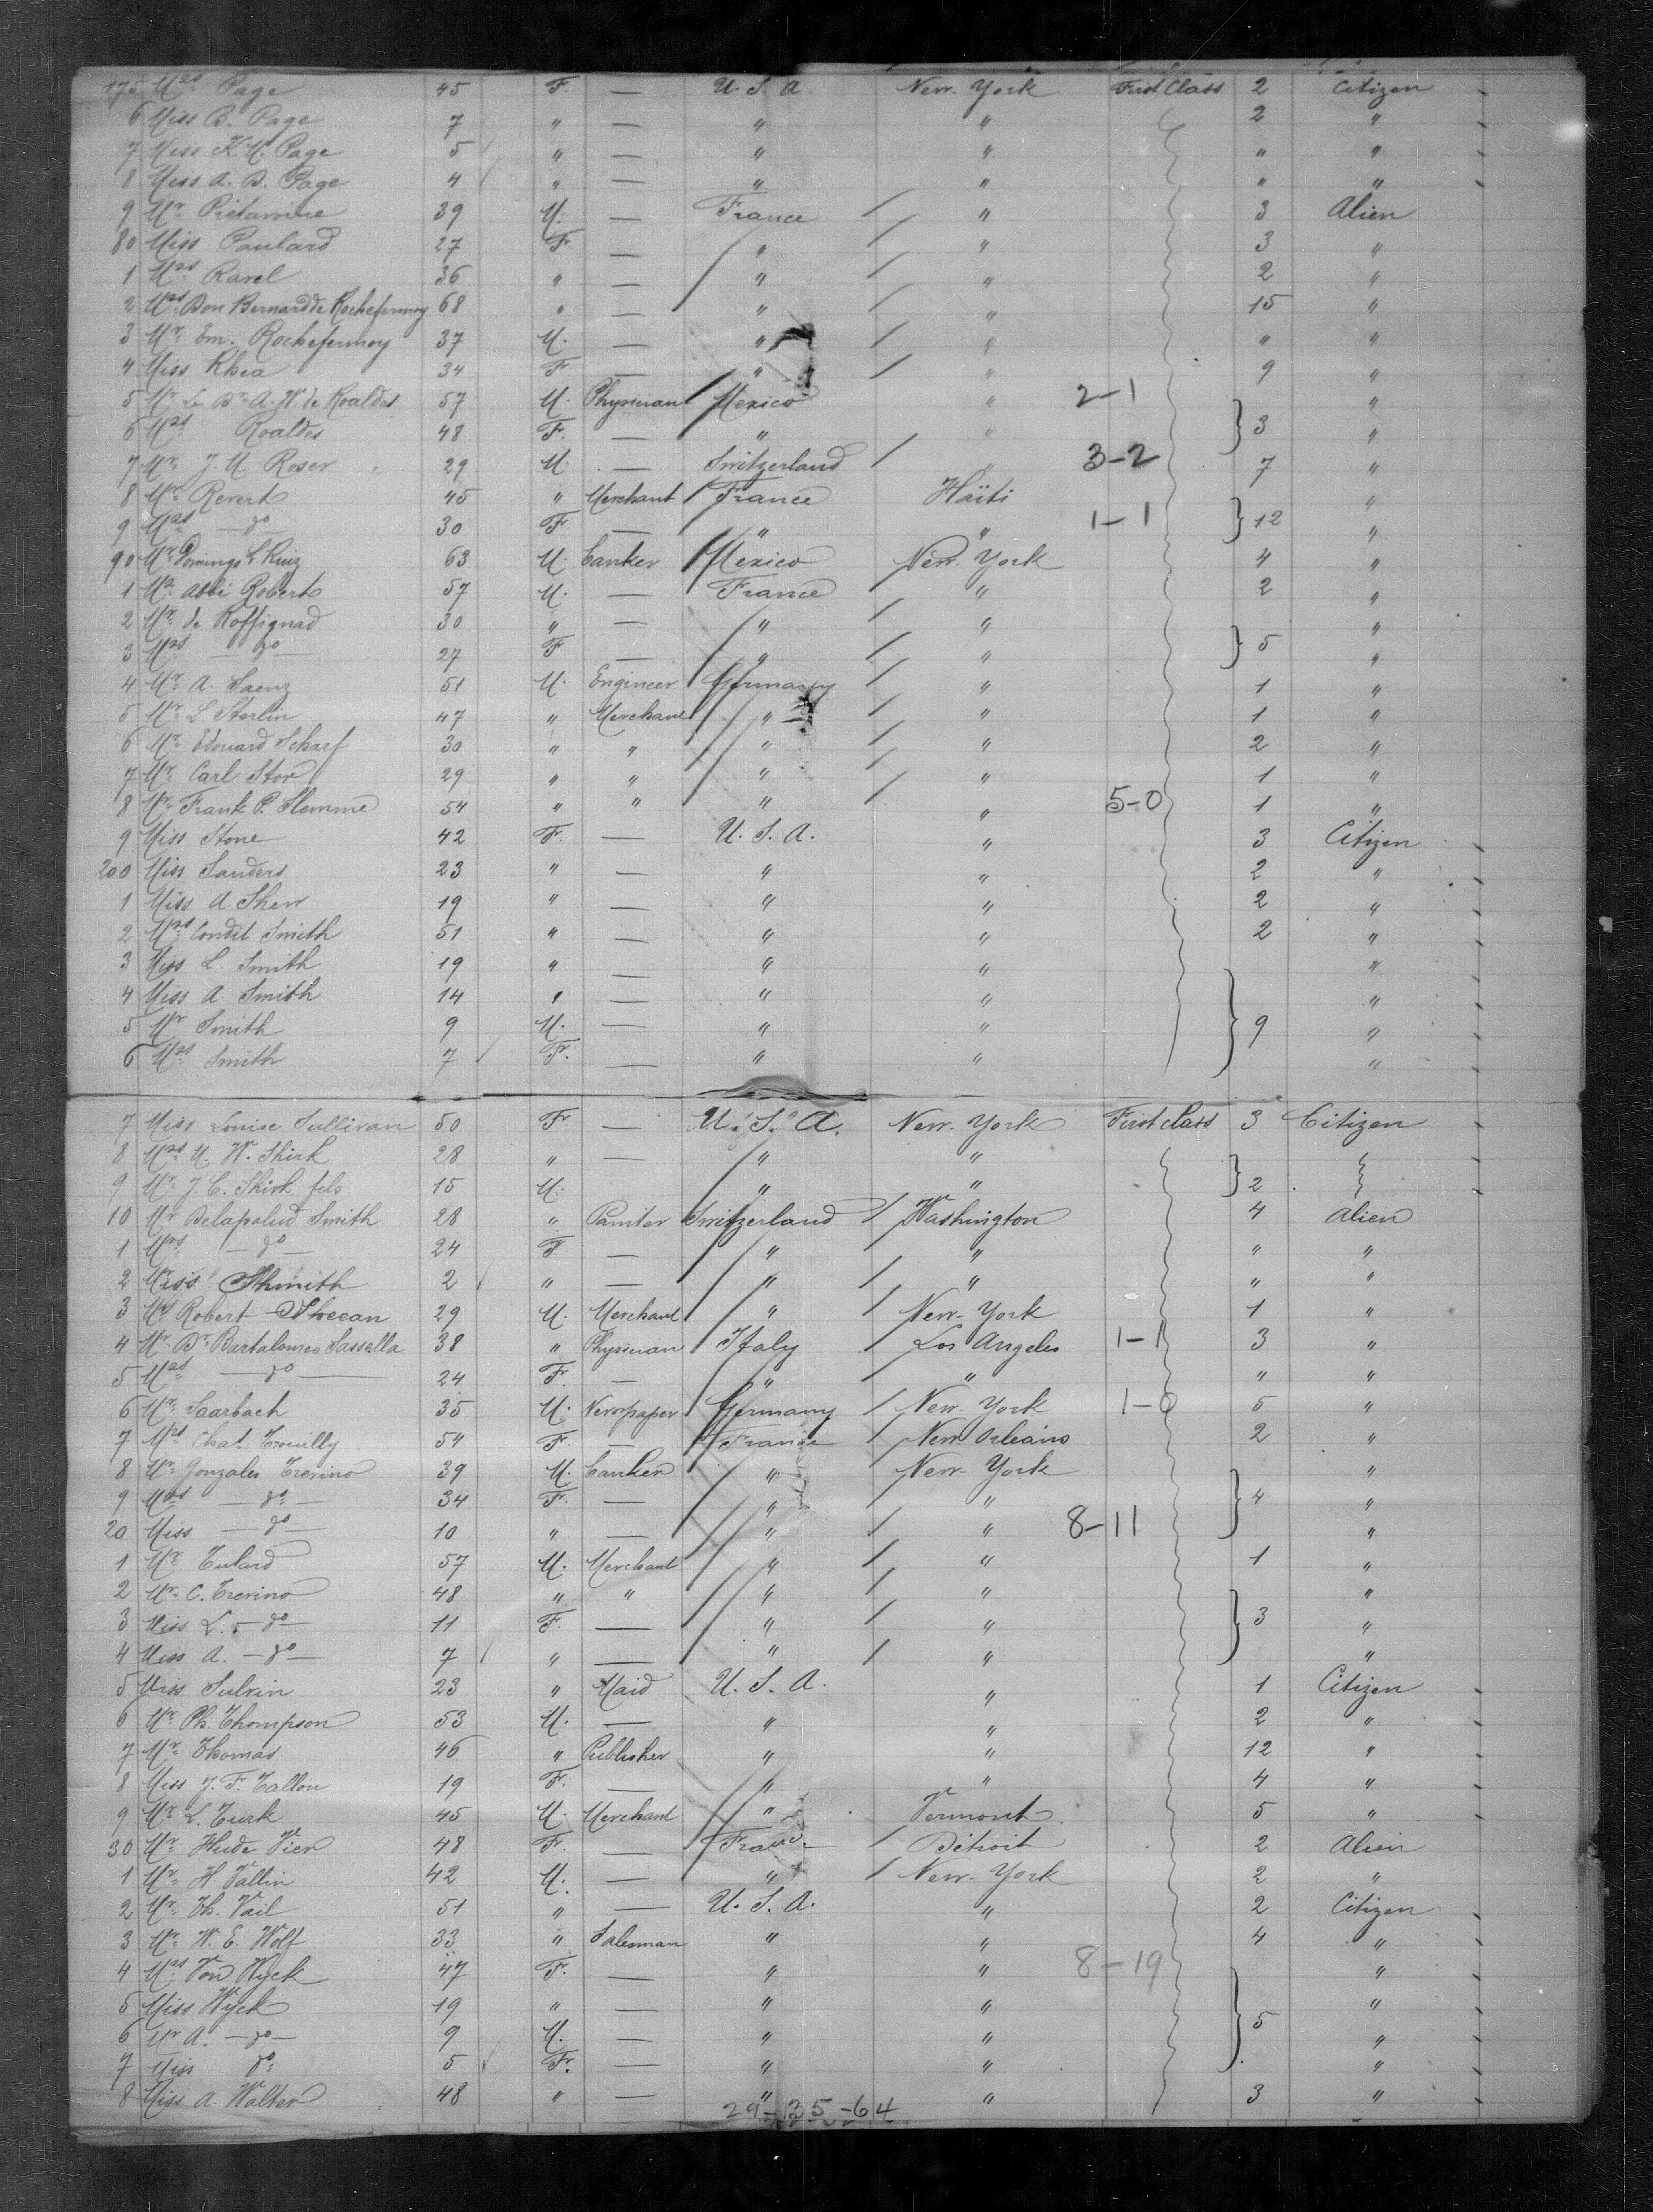 175 Mrs Page 45 F. — U. S. A. New-York First Class 2 Citizen
6 Miss B. Page 7 " — " " 2 "
7 Miss K. M. Page 5 " — " " " "
8 Miss A. D. Page 4 " — " " " "
9 Mr Piétavoine 39 M. — France " 3 Alien
80 Miss Paulard 27 F — " " 3 "
1 Mrs Ravel 36 " — " " 2 "
2 Mrs Bon Bernard de Rochefermoy 68 " — " " 15 "
3 Mr Em. Rochefermoy 37 M. — " " " "
4 Miss Rhea 34 F — " " 9 "
5 Mr Le Dr A. W. de Roaldes 57 M. Physician Mexico " 2-1 "
6 Mrs Roaldes 48 F. — " " 3 "
7 Mr J. M. Roser 29 M. — Switzerland " 3-2 7 "
8 Mr Revert 45 " Merchant France Haïti "
9 Mrs — do 30 F. — " " 1-1 12 "
90 Mr Domingo L. Ruiz 63 M. Banker Mexico New-York 4 "
1 Mr abbé Robert 57 M. — France " 2 "
2 Mr de Roffignad 30 " — " " "
3 Mrs — do — 27 F — " " 5 "
4 Mr A. Saenz 51 M. Engineer Germany " 1 "
5 Mr L. Sterlin 47 " Merchant " " 1 "
6 Mr Edouard Scharf 30 " " " " 2 "
7 Mr Carl Stor 29 " " " " 1 "
8 Mr Frank P. Slemme 54 " " " " 5-0 1 "
9 Miss Stone 42 F. — U. S. A. " 3 Citizen
200 Miss Sanders 23 " — " " 2 "
1 Miss A. Sherr 19 " — " " 2 "
2 Mrs Condit Smith 51 " — " " 2 "
3 Miss L. Smith 19 " — " " "
4 Miss A. Smith 14 " — " " "
5 Mr Smith 9 M. — " " 9 "
6 Mrs Smith 7 F. — " " "
7 Miss Louise Sullivan 50 F — U. S. A. New-York First Class 3 Citizen
8 Mrs M. W. Shirk 28 " — " "
9 Mr J. C. Shirk fils 15 M. " " 2
10 Mr Delapalud Smith 28 " Painter Switzerland Washington 4 Alien
1 Mrs — do — 24 F — " " " "
2 Miss Shmith 2 " — " " " "
3 Mr Robert Skeean 29 M. Merchant " New-York 1 "
4 Mr Dr Bartalomeo Sassella 38 " Physician Italy Los Angeles 1-1 3 "
5 Mrs — do — 24 F. — " " " "
6 Mr Saarbach 35 M. Newspaper Germany New-York 1-0 5 "
7 Mrs Chat. Trouilly 54 F. — France New Orleans 2 "
8 Mr Gonzales Trevino 39 M. Banker " New-York "
9 Mrs — do — 34 F. — " " 4 "
20 Miss — do — 10 " — " " 8-11 "
1 Mr Tulard 57 M. Merchant " " 1 "
2 Mr C. Trevino 48 " " " " "
3 Miss L. — do — 11 F. — " " 3 "
4 Miss A. — do — 7 " — " " "
5 Miss Sulvin 23 " Maid U. S. A. " 1 Citizen
6 Mr Ph. Thompson 53 M. — " " 2 "
7 Mr Thomas 46 " Publisher " " 12 "
8 Miss J. F. Tallon 19 F. — " " 4 "
9 Mr L. Turk 45 M. Merchant " Vermont 5 "
30 Mr Hude Vier 48 F. — France Détroit 2 Alien
1 Mr H. Vallin 42 M. — " New-York 2 "
2 Mr Th. Vail 51 " — U. S. A. " 2 Citizen
3 Mr W. E. Wolf 33 " Salesman " " 4 "
4 Mrs Von Wyck 47 F. — " " 8-19 "
5 Miss Wyck 19 " — " " "
6 Mr A. — do — 9 M. — " " 5 "
7 Miss do 5 F. — " " "
8 Miss A. Walter 48 " — " " 3 "
29-135-64